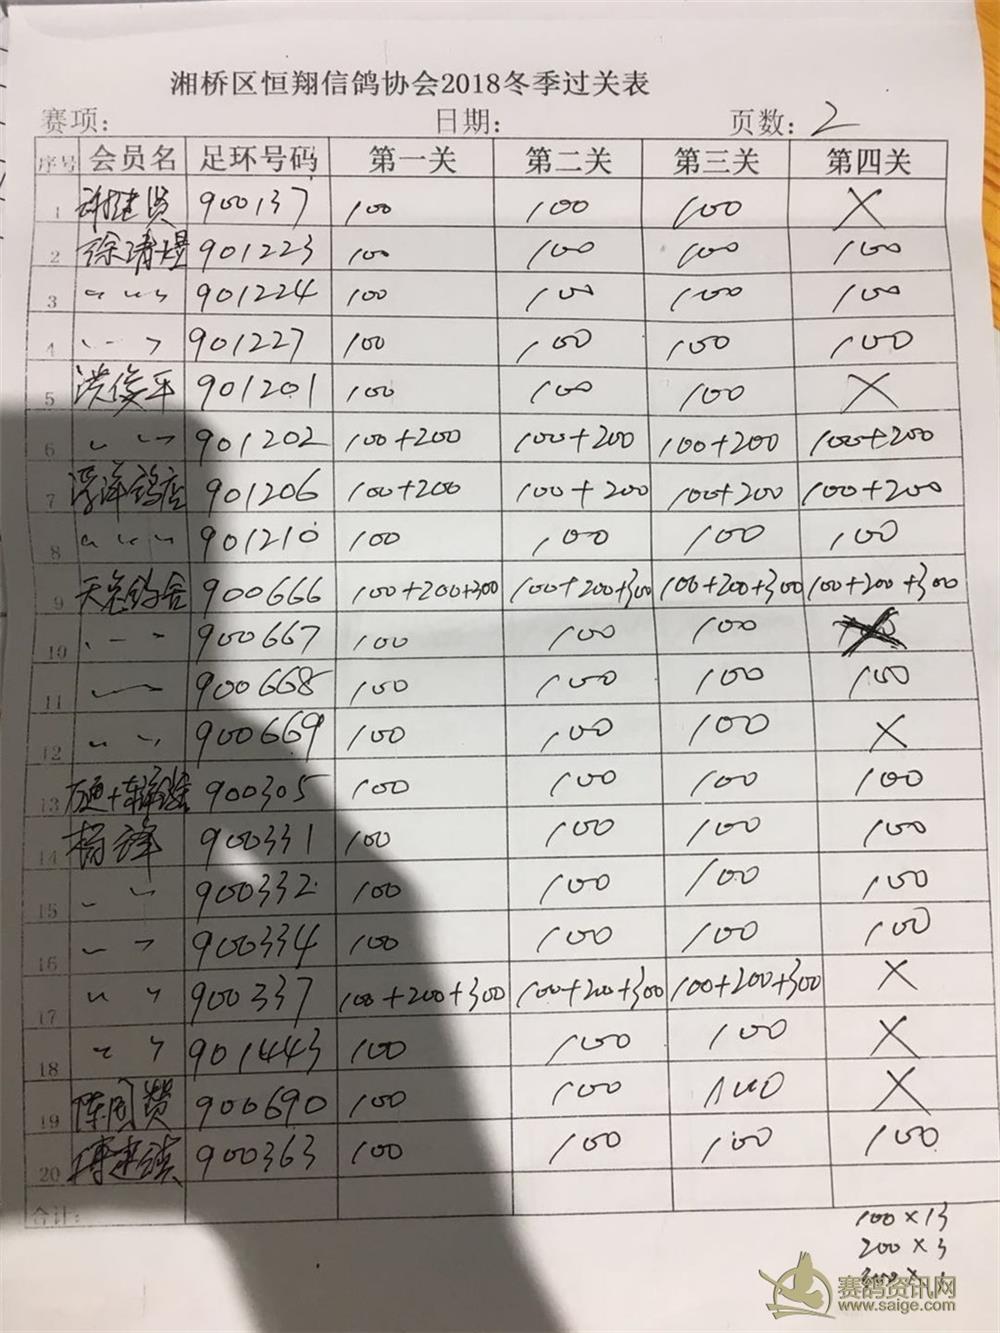 湘桥区恒翔信鸽协会2018冬季过关表
赛项: 日期: 页数: 2
序号 会员名 足环号码 第一关 第二关 第三关 第四关
1 900137 100 100 100 X
2 徐清煜 901223 100 100 100 100
3 〃 〃 901224 100 100 100 100
4 〃 〃 901227 100 100 100 100
5 洪俊平 901201 100 100 100 X
6 〃 〃 901202 100+200 100+200 100+200 100+200
7 浮洋鸽店 901206 100+200 100+200 100+200 100+200
8 〃 〃 901210 100 100 100 100
9 900666 100+200+300 100+200+300 100+200+300 100+200+300
10 〃 〃 900667 100 100 100 X
11 〃 900668 100 100 100 100
12 〃 〃 900669 100 100 100 X
13 900305 100 100 100 100
14 杨锋 900331 100 100 100 100
15 〃 〃 900332 100 100 100 100
16 〃 〃 900334 100 100 100 100
17 〃 〃 900337 100+200+300 100+200+300 100+200+300 X
18 〃 〃 901443 100 100 100 X
19 900690 100 100 100 X
20 900363 100 100 100 100
合计:
100×13
200×3
300×1
赛鸽资讯网
www.saige.com